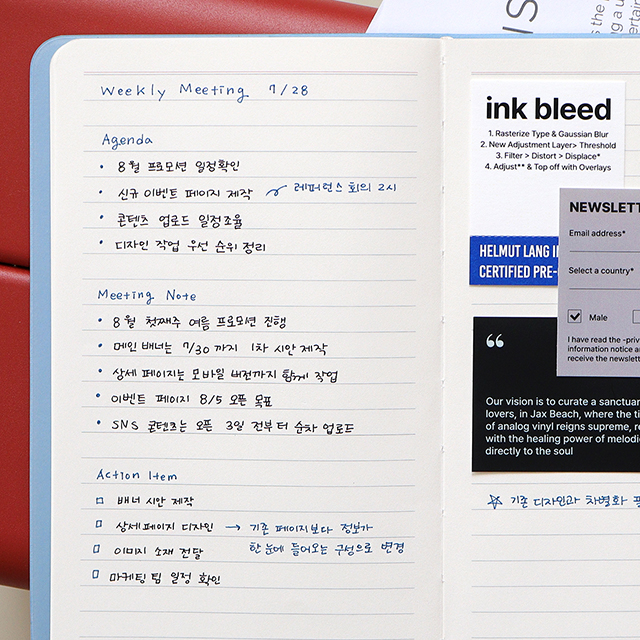 Weekly Meeting 7/28
Agenda
• 8월 프로모션 일정확인
• 신규 이벤트 페이지 제작 레퍼런스 회의 2시
• 콘텐츠 업로드 일정조율
• 디자인 작업 우선 순위 정리
Meeting Note
• 8월 첫째주 여름 프로모션 진행
• 메인 배너는 7/30 까지 1차 시안 제작
• 상세 페이지는 모바일 버전까지 함께 작업
• 이벤트 페이지 8/5 오픈 목표
• SNS 콘텐츠는 오픈 3일 전부터 순차 업로드
Action Item
□ 배너 시안 제작
□ 상세페이지 디자인 → 기존 페이지보다 정보가
한 눈에 들어오는 구성으로 변경
□ 이미지 소재 전달
□ 마케팅 팀 일정 확인
ink bleed
1. Rasterize Type & Gaussian Blur
2. New Adjustment Layer> Threshold
3. Filter > Distort > Displace*
4. Adjust** & Top off with Overlays
HELMUT LANG
CERTIFIED PRE-
NEWSLETT
Email address*
Select a country*
Male
I have read the -priv
information notice a
receive the newslett
“
Our vision is to curate a sanctua
lovers, in Jax Beach, where the ti
of analog vinyl reigns supreme, re
with the healing power of melodi
directly to the soul
☆ 기존 디자인과 차별화